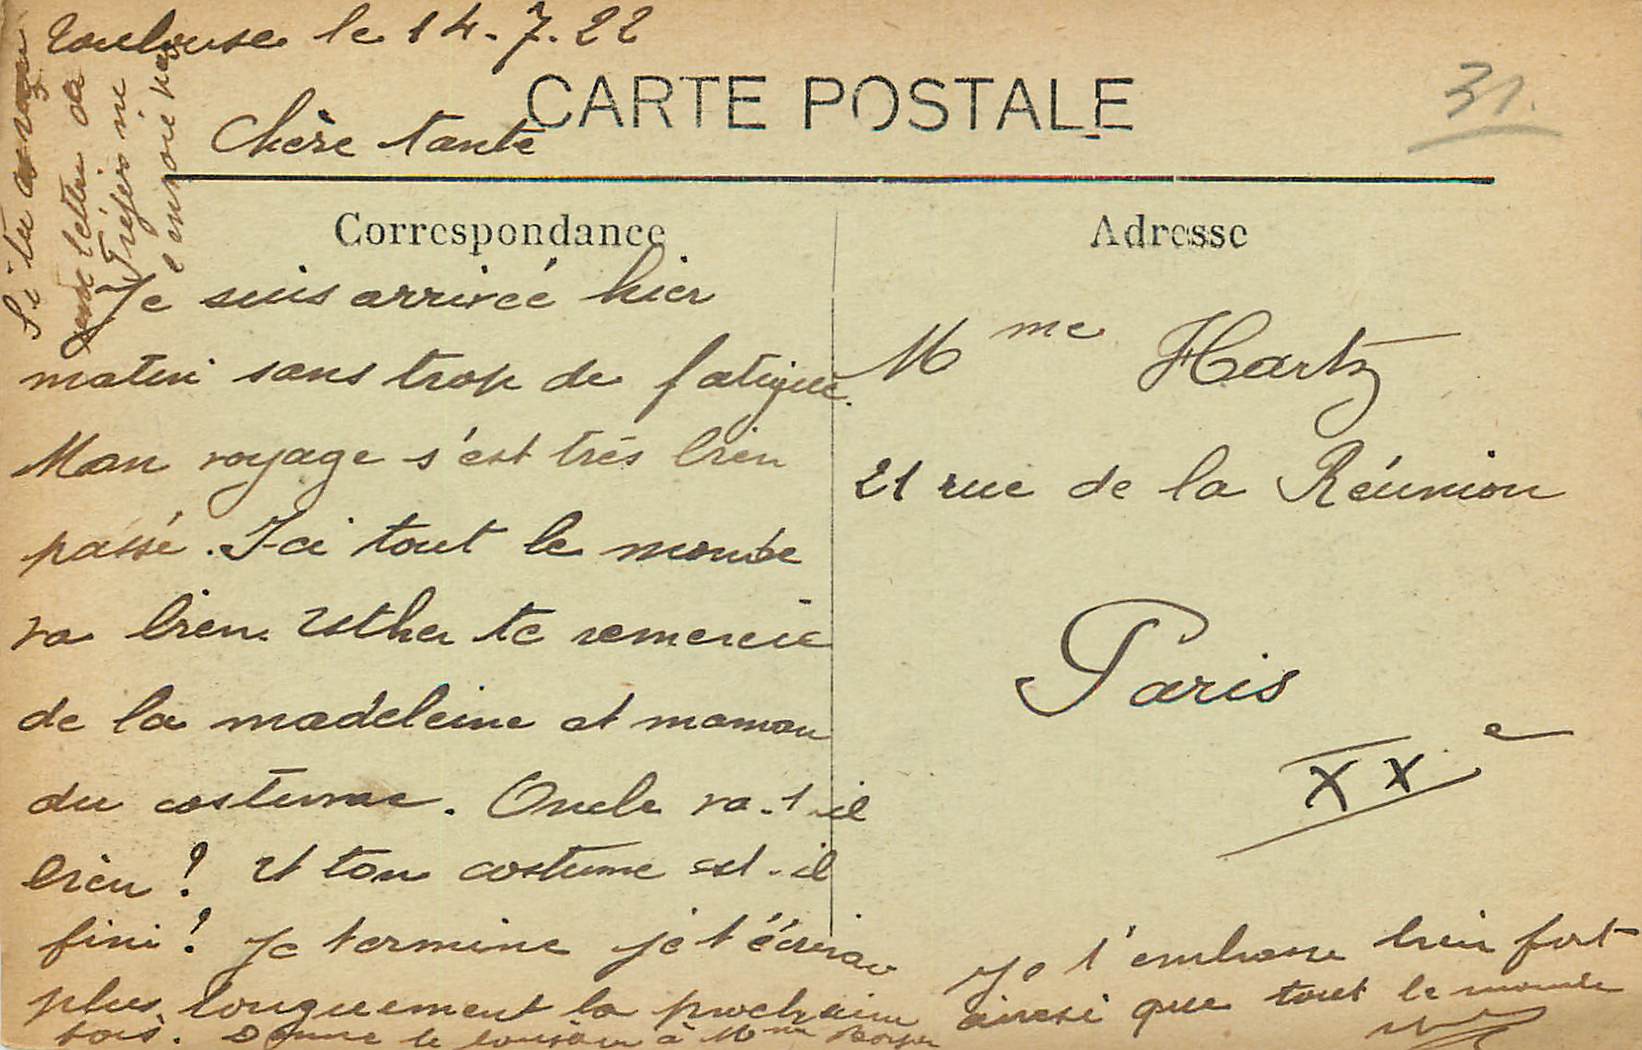 Toulouse le 14.7.22
CARTE POSTALE
31.
Chère tante
Correspondance
Adresse
Je suis arrivée hier
matin sans trop de fatigue.
Mon voyage s'est très bien
passé. I-ci tout le monde
va bien. Esther te remercie
de la madeleine et maman
du costume. Oncle va-t-il
bien ? Et ton costume est-il
fini ? Je termine je t'écrirai
plus longuement la prochaine
fois. Donne le bonjour à Mme
Je t'embrasse bien fort
ainsi que tout le monde
Mme Hartz
21 rue de la Réunion
Paris
XXe
Si tu
une lettre de
Tréfors ne
l'envoie pas